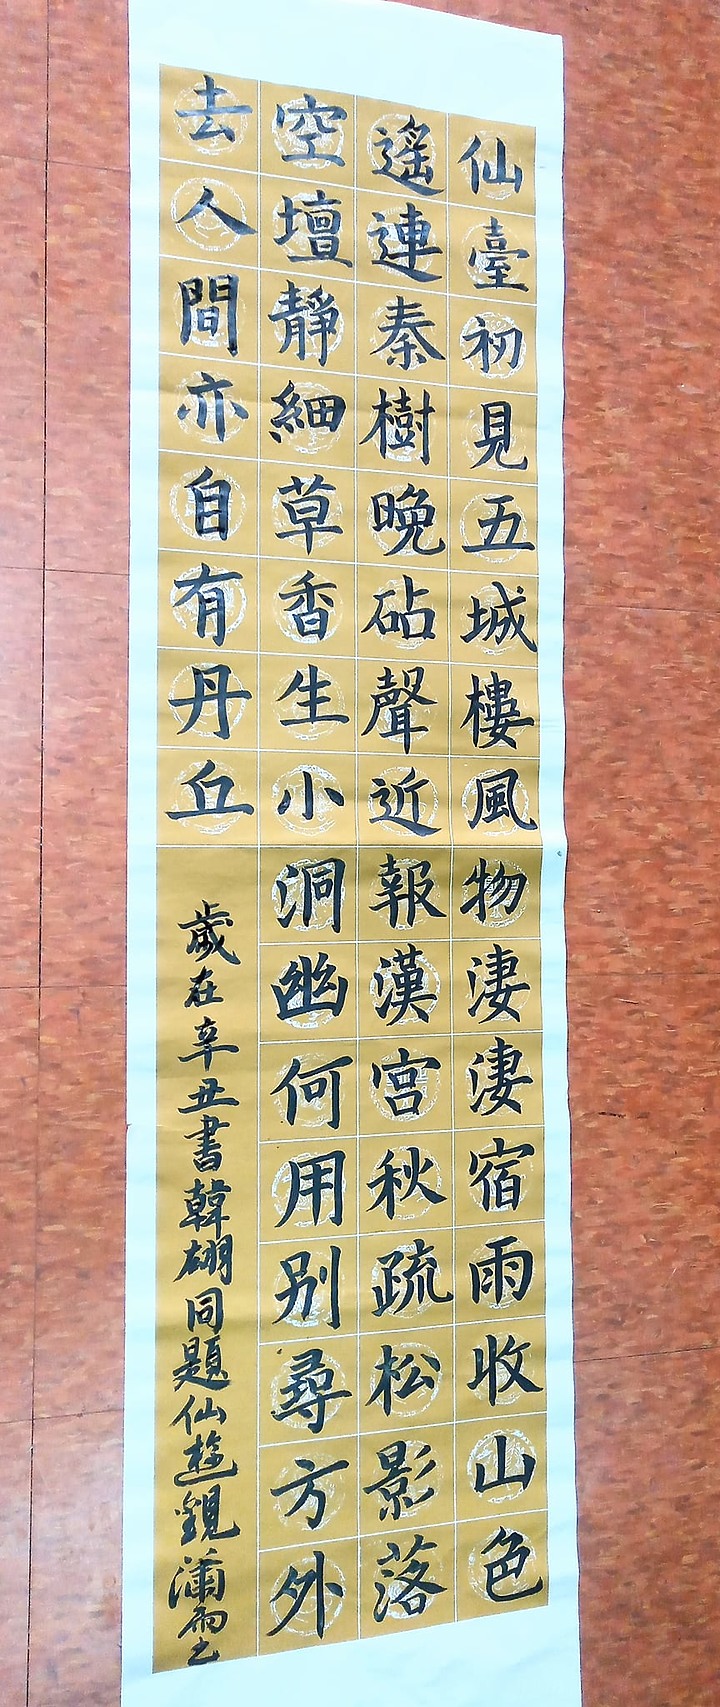 仙臺初見五城樓風物淒淒宿雨收山色
遙連秦樹晚砧聲近報漢宮秋疏松影落
空壇靜細草香生小洞幽何用别尋方外
去人間亦自有丹丘
歲在辛丑書韓翃同題仙遊觀